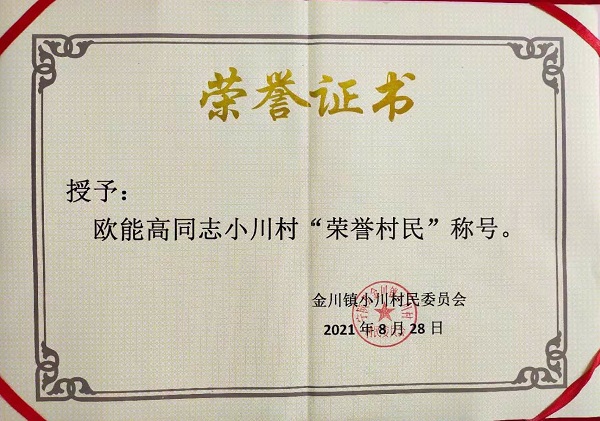 荣誉证书
授予：
欧能高同志小川村“荣誉村民”称号。
金川镇小川村民委员会
2021 年 8 月 28 日